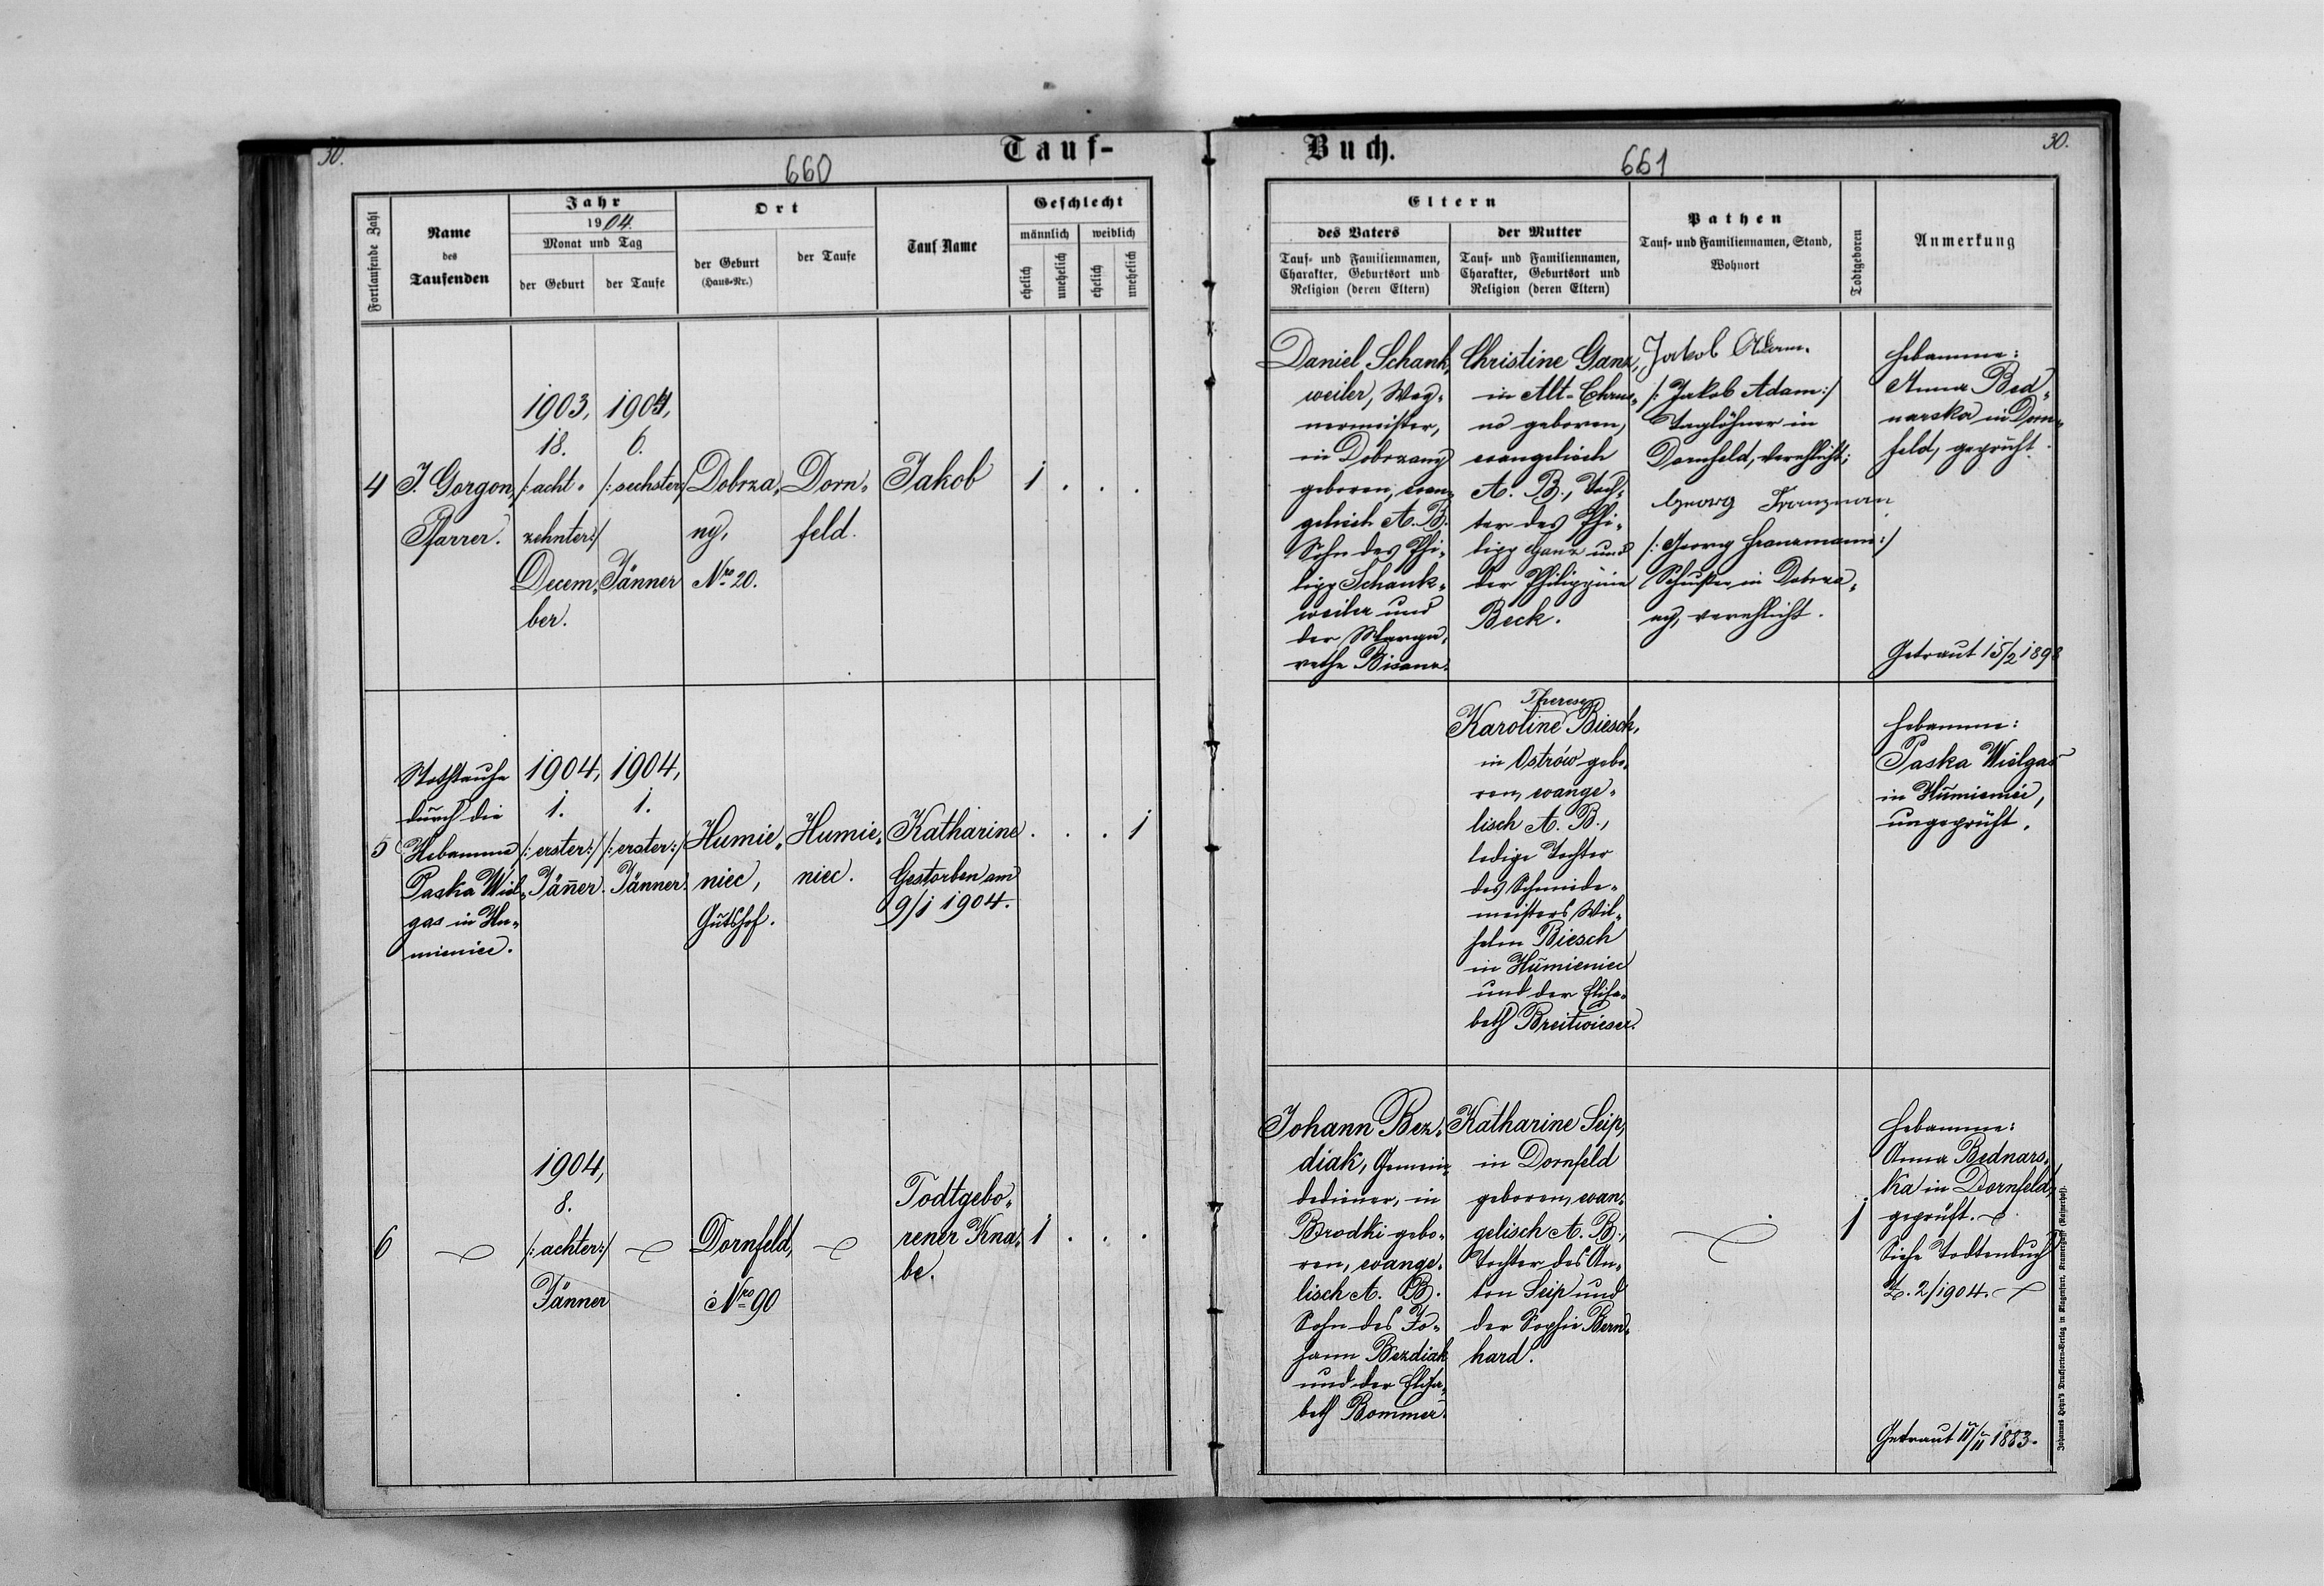 30.
Tauf-
660
Fortlaufende Zahl
Name
des
Taufenden
Jahr
1904.
Monat und Tag
der Geburt
der Taufe
Ort
der Geburt
(Haus-Nr.)
der Taufe
Tauf Name
Geschlecht
männlich
weiblich
ehelich
unehelich
ehelich
unehelich
4
J. Gorgon,
Pfarrer.
1903,
18.
/: acht-
zehnter :/
Decem-
ber.
1904,
6.
/: sechster :/
Jänner
Dobrza-
ny,
Nro 20.
Dorn-
feld.
Jakob
1 . . .
5
Nothtaufe
durch die
Hebamme
Paska Wiel-
gas in Hu-
mieniec.
1904,
1.
/: erster :/
Jänner.
1904,
1.
/: erster :/
Jänner.
Humie-
niec,
Gutshof.
Humie-
niec.
Katharine
Gestorben am
9/1 1904.
. . . 1
6
1904,
8.
/: achter :/
Jänner
Dornfeld,
Nro 90
Todtgebo-
rener Kna-
be.
1 . . .
Buch.
30.
661
Eltern
des Vaters
Tauf- und Familiennamen,
Charakter, Geburtsort und
Religion (deren Eltern)
der Mutter
Tauf- und Familiennamen,
Charakter, Geburtsort und
Religion (deren Eltern)
Pathen
Tauf- und Familiennamen, Stand,
Wohnort
Todtgeboren
Anmerkung
Daniel Schank-
weiler, Wag-
nermeister,
in Dobrzany
geboren, evan-
gelisch A. B.
Sohn des Phi-
lipp Schank-
weiler und
der Marga-
rethe Bisanz.
Christine Ganz,
in Alt-Chrus-
no geboren,
evangelisch
A. B., Toch-
ter des Phi-
lipp Ganz und
der Philippine
Beck.
Jakob Adam.
/: Jakob Adam :/
Taglöhner in
Dornfeld, verehlicht;
Georg Franzman
/: Georg Franzmann :/
Schuster in Dobrza-
ny, verehlicht.
Hebamme:
Anna Bed-
narska in Dorn-
feld, geprüft.
Getraut 15/2 1898
Therese
Karoline Biesch,
in Ostrów gebo-
ren, evange-
lisch A. B.,
ledige Tochter
des Schmiede-
meisters Wil-
helm Biesch
in Humieniec
und der Elisa-
beth Breitwieser.
Hebamme:
Paska Wielgas
in Humieniec,
ungeprüft.
Johann Bez-
diak, Gemein-
dediener, in
Brodki gebo-
ren, evange-
lisch A. B.
Sohn des Jo-
hann Bezdiak
und der Elisa-
beth Bommer.
Katharine Seip,
in Dornfeld
geboren, evan-
gelisch A. B.,
Tochter des An-
ton Seip und
der Sophie Bern-
hard.
1
Hebamme:
Anna Bednars-
ka in Dornfeld,
geprüft.
Siehe Todtenbuch
Z. 2/1904.
Getraut 11/II 1883.
Johannes Heyn's Drucksorten-Verlag in Klagenfurt, Kramergasse